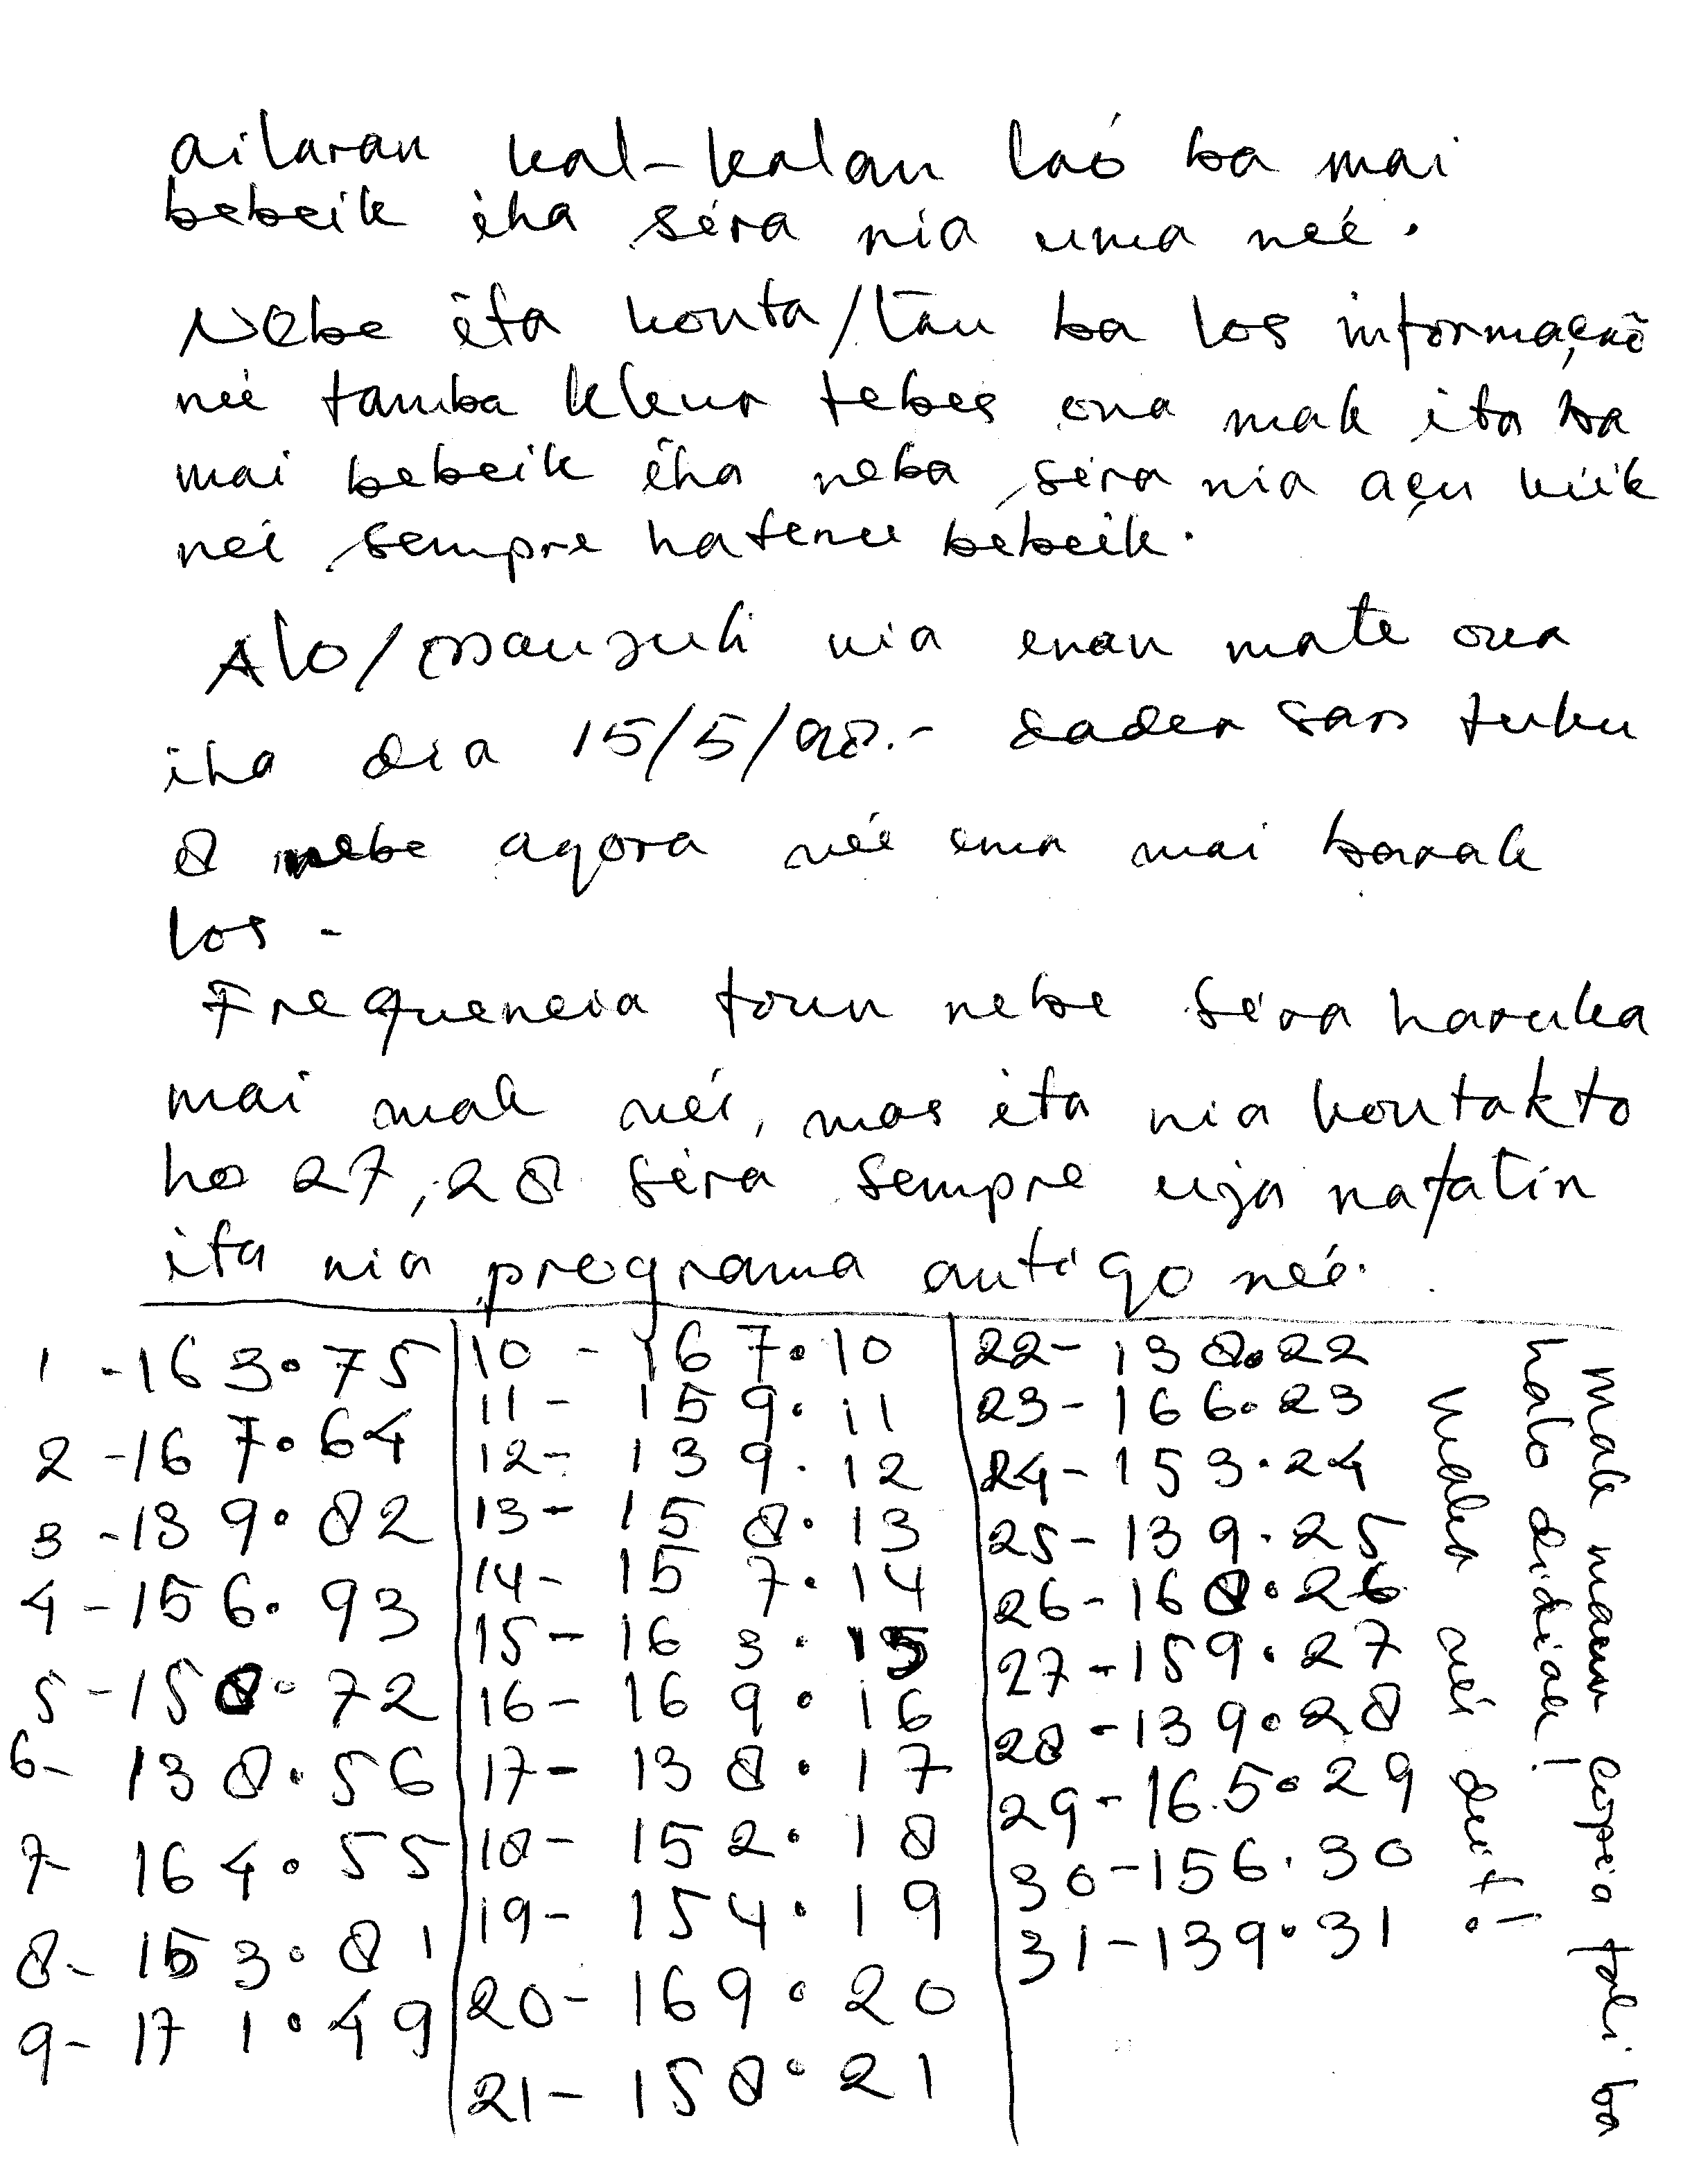 ailaran kal-kalan laó ba mai
bebeik iha séra nia uma neé.
Nebe ita konta/tau ba los informaçaõ
neé tamba kleur tebes ona mak ita ba
mai bebeik iha neba séra nia açu kiik
nei sempre hatene bebeik.
Alo/Mausuli nia enan mate ona
iha dia 15/5/98.- dader san tuku
8 nebe agora neé ema mai barak
los -
Frequencia foun nebe séra haruka
mai mak nei, mas ita nia kontakto
ho 27,28 séra sempre uja nafatin
ita nia programa antigo neé.
1 -163.75
2 -167.64
3 -139.82
4 -156.93
5 -158.72
6- 138.56
7- 164.55
8- 153.81
9- 171.49
10 - 167.10
11 - 159.11
12- 139.12
13- 158.13
14- 157.14
15- 163.15
16- 169.16
17- 138.17
18- 152.18
19- 154.19
20- 169.20
21- 158.21
22- 138.22
23- 166.23
24- 153.24
25- 139.25
26- 168.26
27- 159.27
28- 139.28
29- 165.29
30-156.30
31-139.31
Mak maun copia tali ba
halo didiak!
nei deit!